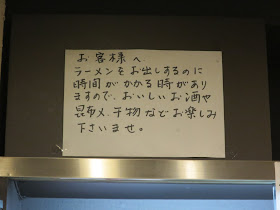 お客様へ
ラーメンをお出しするのに
時間がかかる時があり
ますので、おいしいお酒や
昆布〆、干物などお楽しみ
下さいませ。